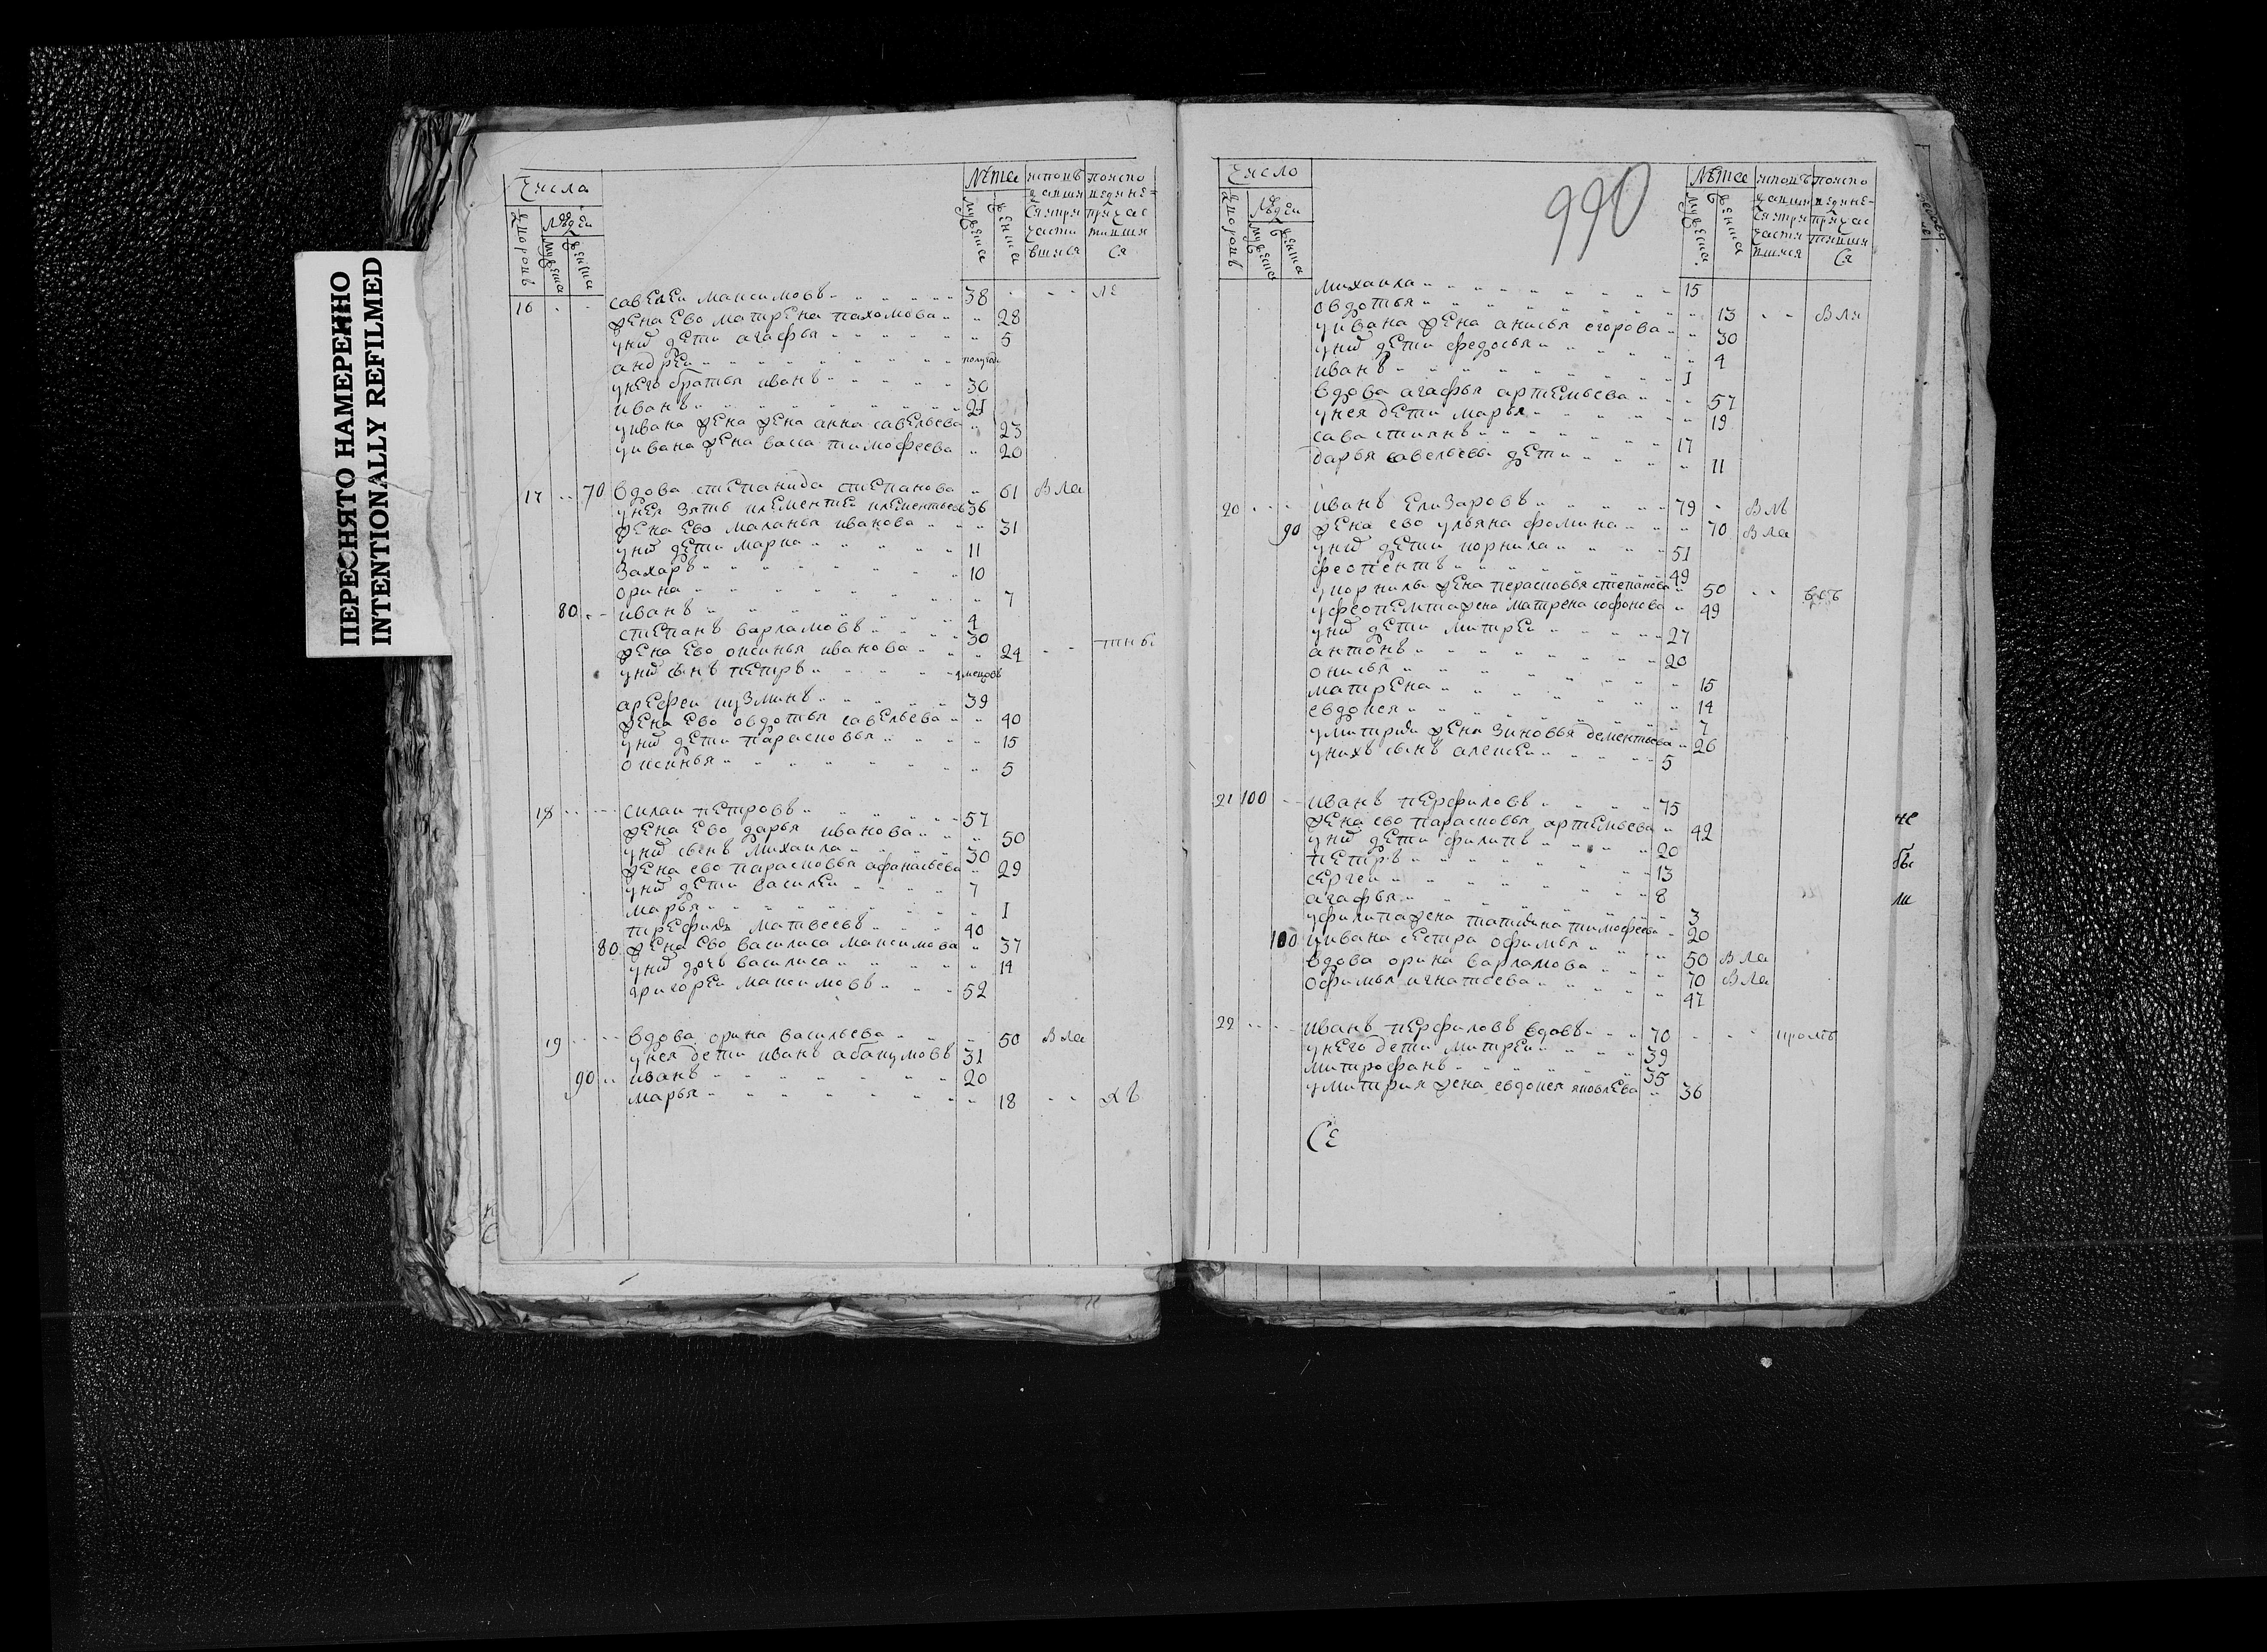 ПЕРЕСНЯТО НАМЕРЕННО
INTENTIONALLY REFILMED
Число
Лѣта
дворовъ
Людеи
мужеска
женска
мужеска
женска
16 савелеи максимовъ 38
жена ево матрена пахомова 28
у нихъ дети агафья 5
андреи полугоду
у него братья иванъ 30
иванъ 21
у ивана жена жена анна савельева 23
у ивана жена васса тимофеева 20
17 70 вдова степанида степанова 61 Вла
у нея зять клементеи клементьевъ 36
жена ево маланья иванова 31
у нихъ дети марка 11
Захаръ 10
орина 7
80 иванъ 4
степанъ варламовъ 30
жена ево оксинья иванова 24 тны
у нихъ сынъ петръ
арефеи кузминъ 39
жена ево овдотья савельева 40
у нихъ дети парасковья 15
оксинья 5
18 силаи петровъ 57
жена ево дарья иванова 50
у нихъ сынъ михаила 30
жена ево парасковья афанасьева 29
у нихъ дети василеи 7
марья 1
трефила матвеевъ 40
80 жена ево василиса максимова 37
у нихъ дочь василиса 14
григореи максимовъ 52
19 вдова орина васильева 50 Вла
у нея дети иванъ абакумовъ 31
90 иванъ 20
марья 18
990
Число
Лѣта
дворовъ
Людеи
мужеска
женска
мужеска
женска
михаила 15
овдотья 13 Вля
у ивана жена анисья егорова 30
у нихъ дети федосья 4
иванъ 1
вдова агафья артемьева 57
у нея дети марья 19
савастиянъ 17
дарья савельевы дети 11
20 иванъ елизаровъ 79 Вль
90 жена ево ульяна фомина 70 Вла
у нихъ дети корнила 51
феопентъ 49
у корнилы жена парасковья степанова 50
у феопемта жена матрена софонова 49
у нихъ дети митреи 27
антонъ 20
онисья 15
матрена 14
евдокея 7
у митрия жена зиновья дементьева 26
у нихъ сынъ алексеи 5
21 100 иванъ перфиловъ 75
жена ево парасковья артемьева 42
у нихъ дети филипъ 20
петръ 13
сергеи 8
агафья 3
у филипа жена татияна тимофеева 20
100 у ивана сестра офимья 50 Вла
вдова орина варламова 70 Вла
офимья игнатьева 47
22 иванъ перфиловъ вдовъ 70
у него дети митреи 39
митрофанъ 35
у митрия жена евдокея яковлева 36
Се
не
бы
ли